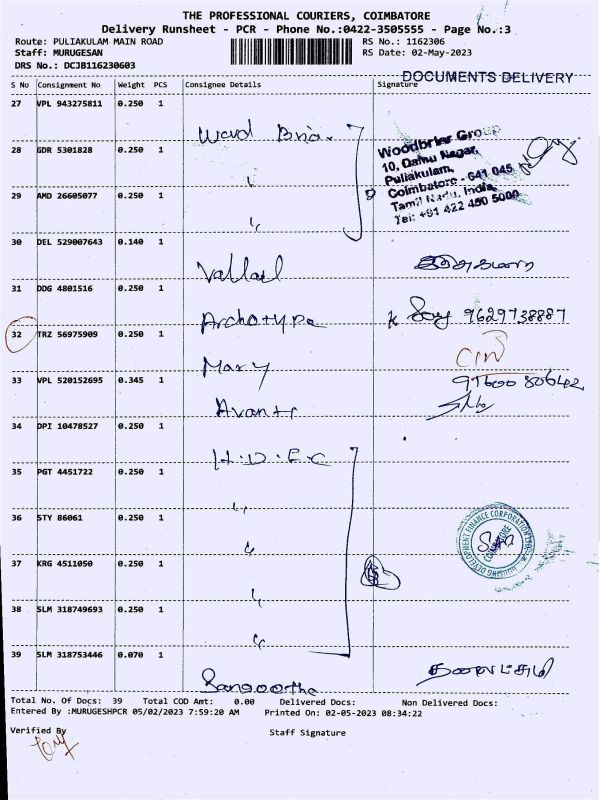 THE PROFESSIONAL COURIERS, COIMBATORE
Delivery Runsheet - PCR - Phone No.:0422-3505555 - Page No.:3
Route: PULIAKULAM MAIN ROAD RS No.: 1162306
Staff: MURUGESAN RS Date: 02-May-2023
DRS No.: DCJB116230603
DOCUMENTS DELIVERY
S No Consignment No Weight PCS Consignee Details Signature
27 VPL 943275811 0.250 1
Woodbriar Group
10, Damu Nagar,
Puliakulam,
Coimbatore - 641 045
Tamil Nadu, India,
Tel: +91 422 450 5000
28 GDR 5301828 0.250 1
29 AMD 26605077 0.250 1
30 DEL 529007643 0.140 1
31 DDG 4801516 0.250 1
Archotype 9629738887
32 TRZ 56975909 0.250 1
Mary
33 VPL 520152695 0.345 1
Avanti 91600 80642
34 DPI 10478527 0.250 1
H.D.F.C
35 PGT 4451722 0.250 1
36 STY 86061 0.250 1
HOUSING DEVELOPMENT FINANCE CORPORATION LTD.
COIMBATORE
37 KRG 4511050 0.250 1
38 SLM 318749693 0.250 1
39 SLM 318753446 0.070 1
Total No. Of Docs: 39 Total COD Amt: 0.00 Delivered Docs: Non Delivered Docs:
Entered By :MURUGESHPCR 05/02/2023 7:59:20 AM Printed On: 02-05-2023 08:34:22
Verified By Staff Signature